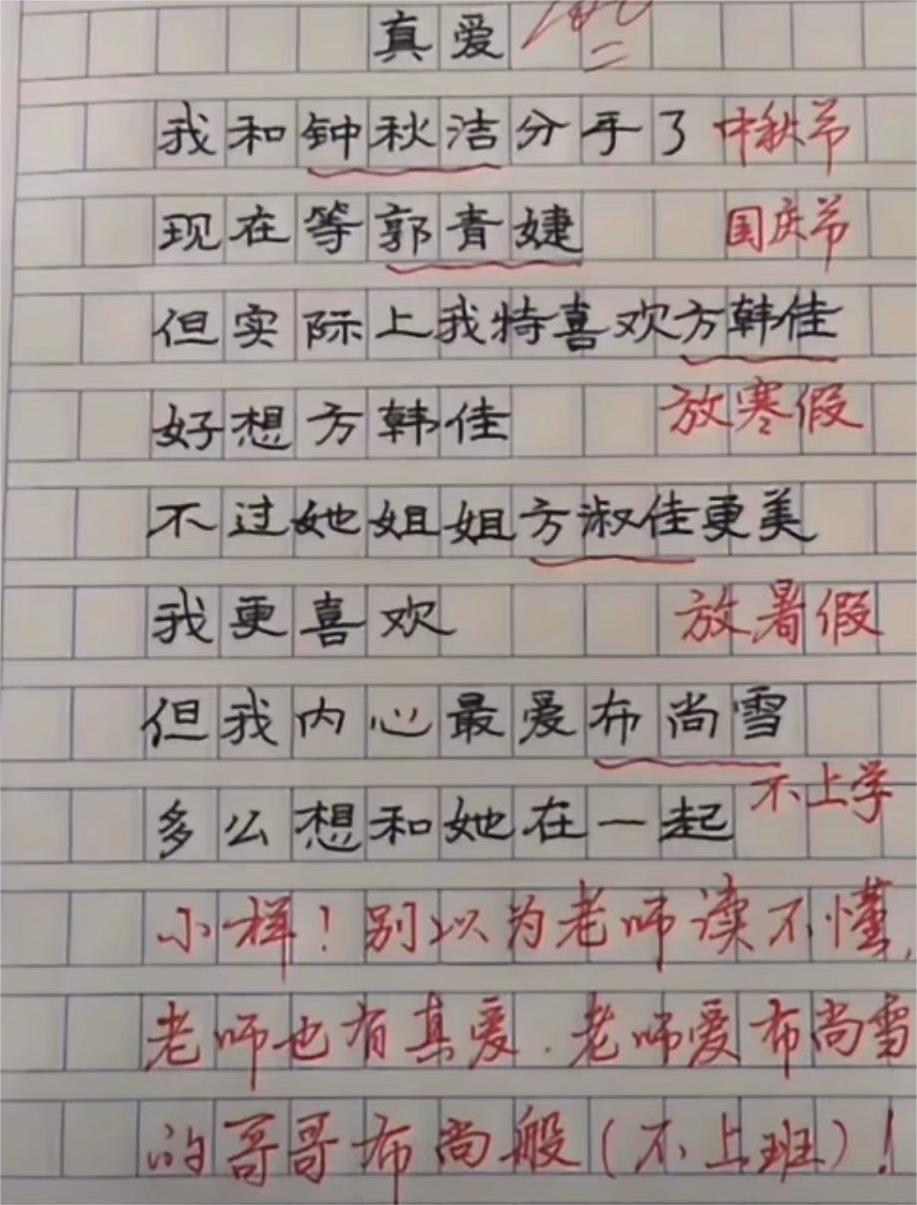 真爱 100
我和钟秋洁分手了 中秋节
现在等郭青婕 国庆节
但实际上我特喜欢方韩佳
好想方韩佳 放寒假
不过她姐姐方淑佳更美
我更喜欢 放暑假
但我内心最爱布尚雪
多么想和她在一起 不上学
小样！别以为老师读不懂，
老师也有真爱．老师爱布尚雪
的哥哥布尚般（不上班）！